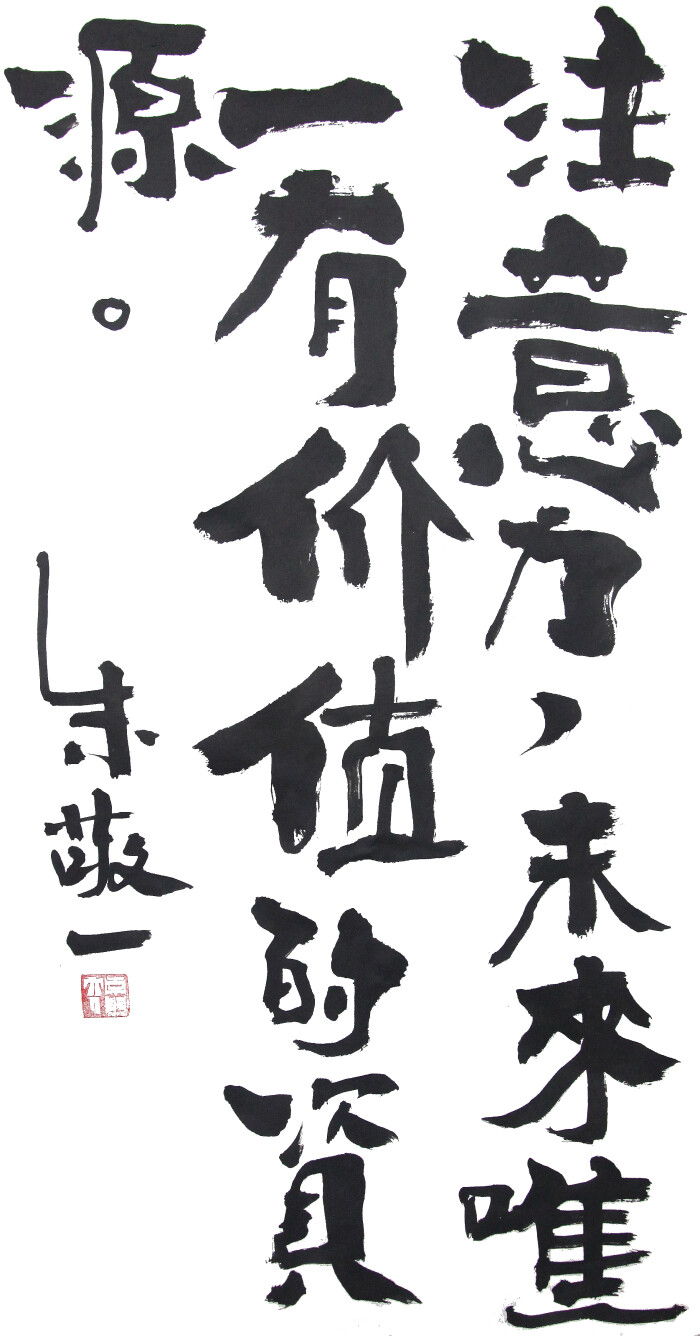 注意力，未來唯
一有价值的資
源。
朱敬一